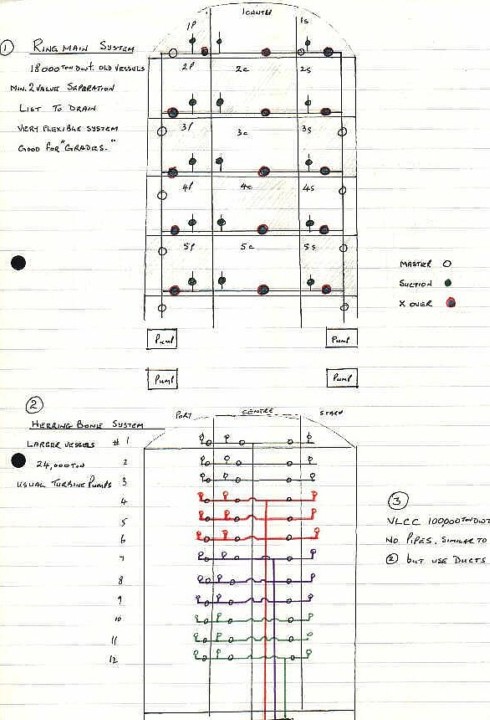 1 RING MAIN SYSTEM
18000 TON DWT. OLD VESSELS
MIN. 2 VALVE SEPARATION
LIST TO DRAIN
VERY FLEXIBLE SYSTEM
GOOD FOR "GRADES."
1P 1CENTRE 1S
2P 2C 2S
3P 3C 3S
4P 4C 4S
5P 5C 5S
MASTER
SUCTION
X OVER
PUMP PUMP
PUMP PUMP
2
HERRING BONE SYSTEM
LARGER VESSELS
24,000 TON
USUAL TURBINE PUMPS
PORT CENTRE STARB
# 1
2
3
4
5
6
7
8
9
10
11
12
3
VLCC 100,000 TON DWT
NO PIPES. SIMILAR TO
2 BUT USE DUCTS